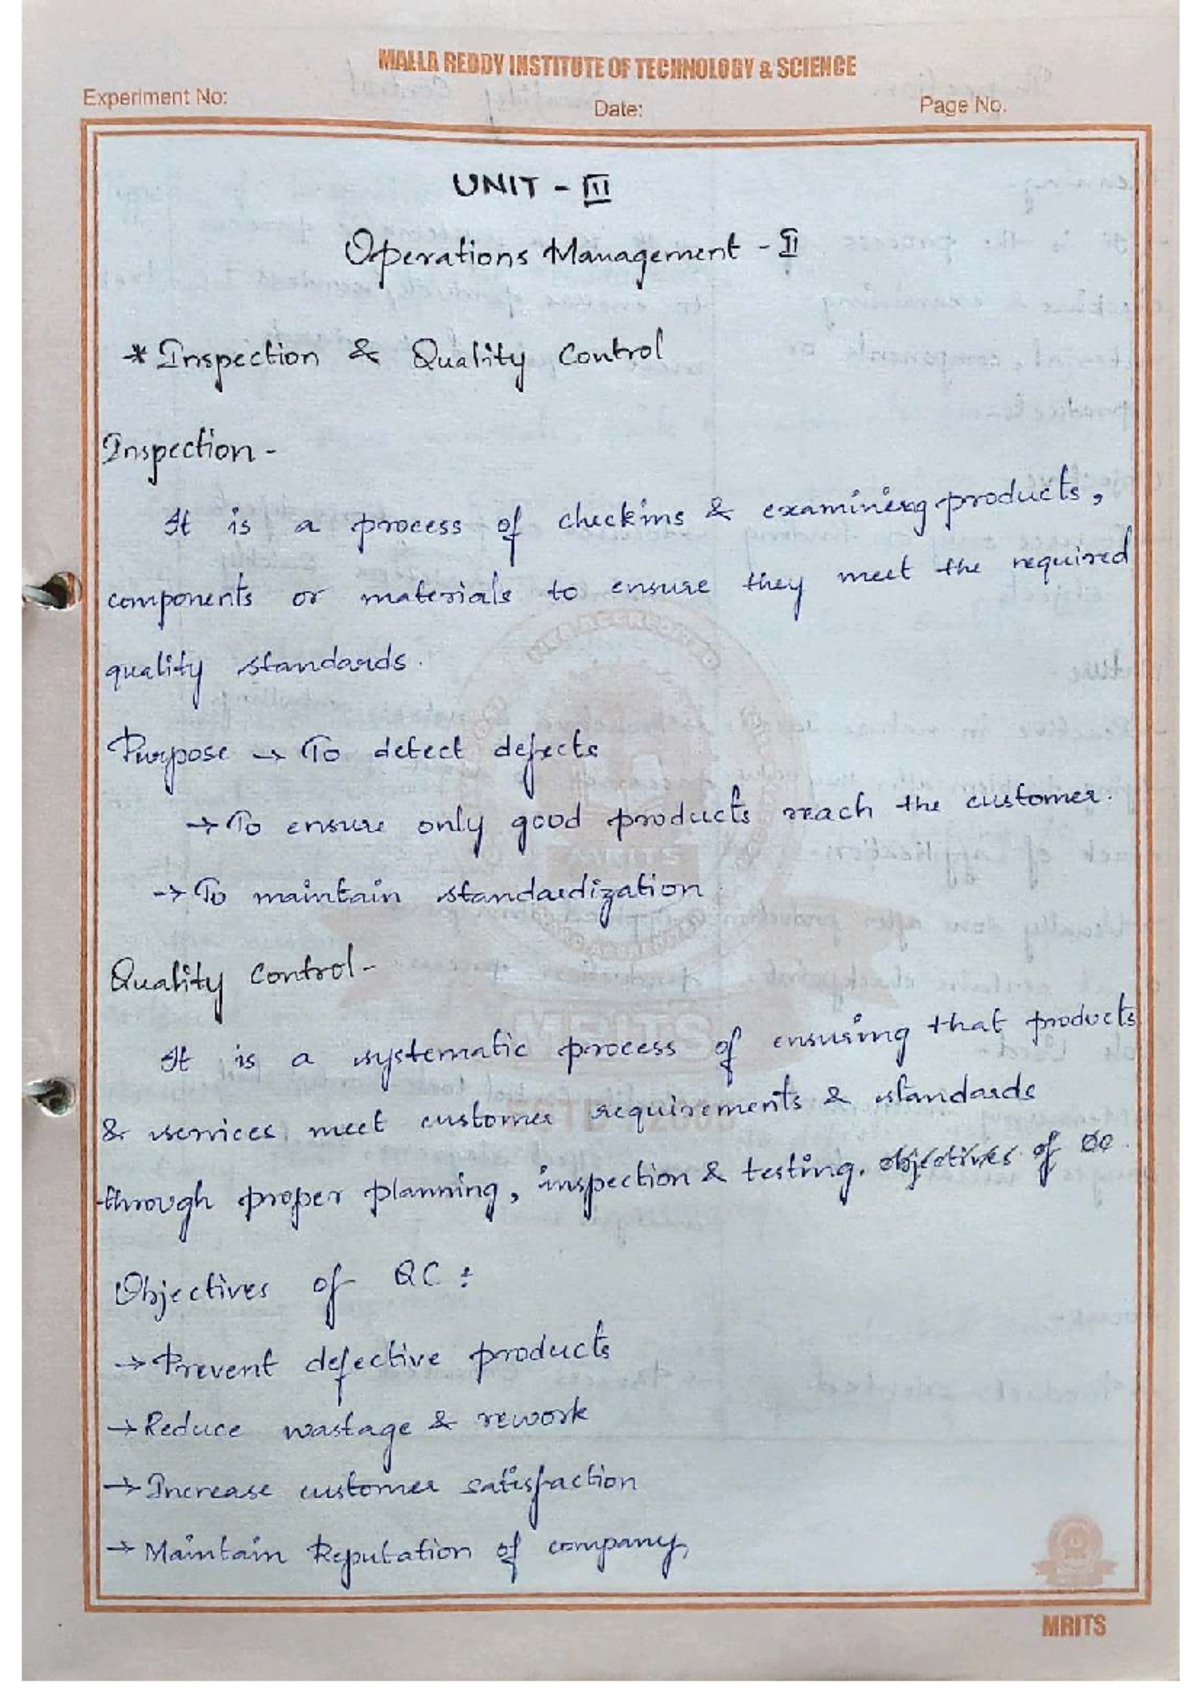 MALLA REDDY INSTITUTE OF TECHNOLOGY & SCIENCE
Experiment No:
Date:
Page No.
UNIT - III
Operations Management - II
* Inspection & Quality Control
Inspection -
It is a process of checking & examining products,
components or materials to ensure they meet the required
quality standards.
Purpose → To detect defects
→ To ensure only good products reach the customer.
→ To maintain standardization
Quality Control -
It is a systematic process of ensuring that products
& services meet customer requirements & standards
through proper planning, inspection & testing. objectives of QC.
Objectives of QC :
→ Prevent defective products
→ Reduce wastage & rework
→ Increase customer satisfaction
→ Maintain Reputation of company,
MRITS